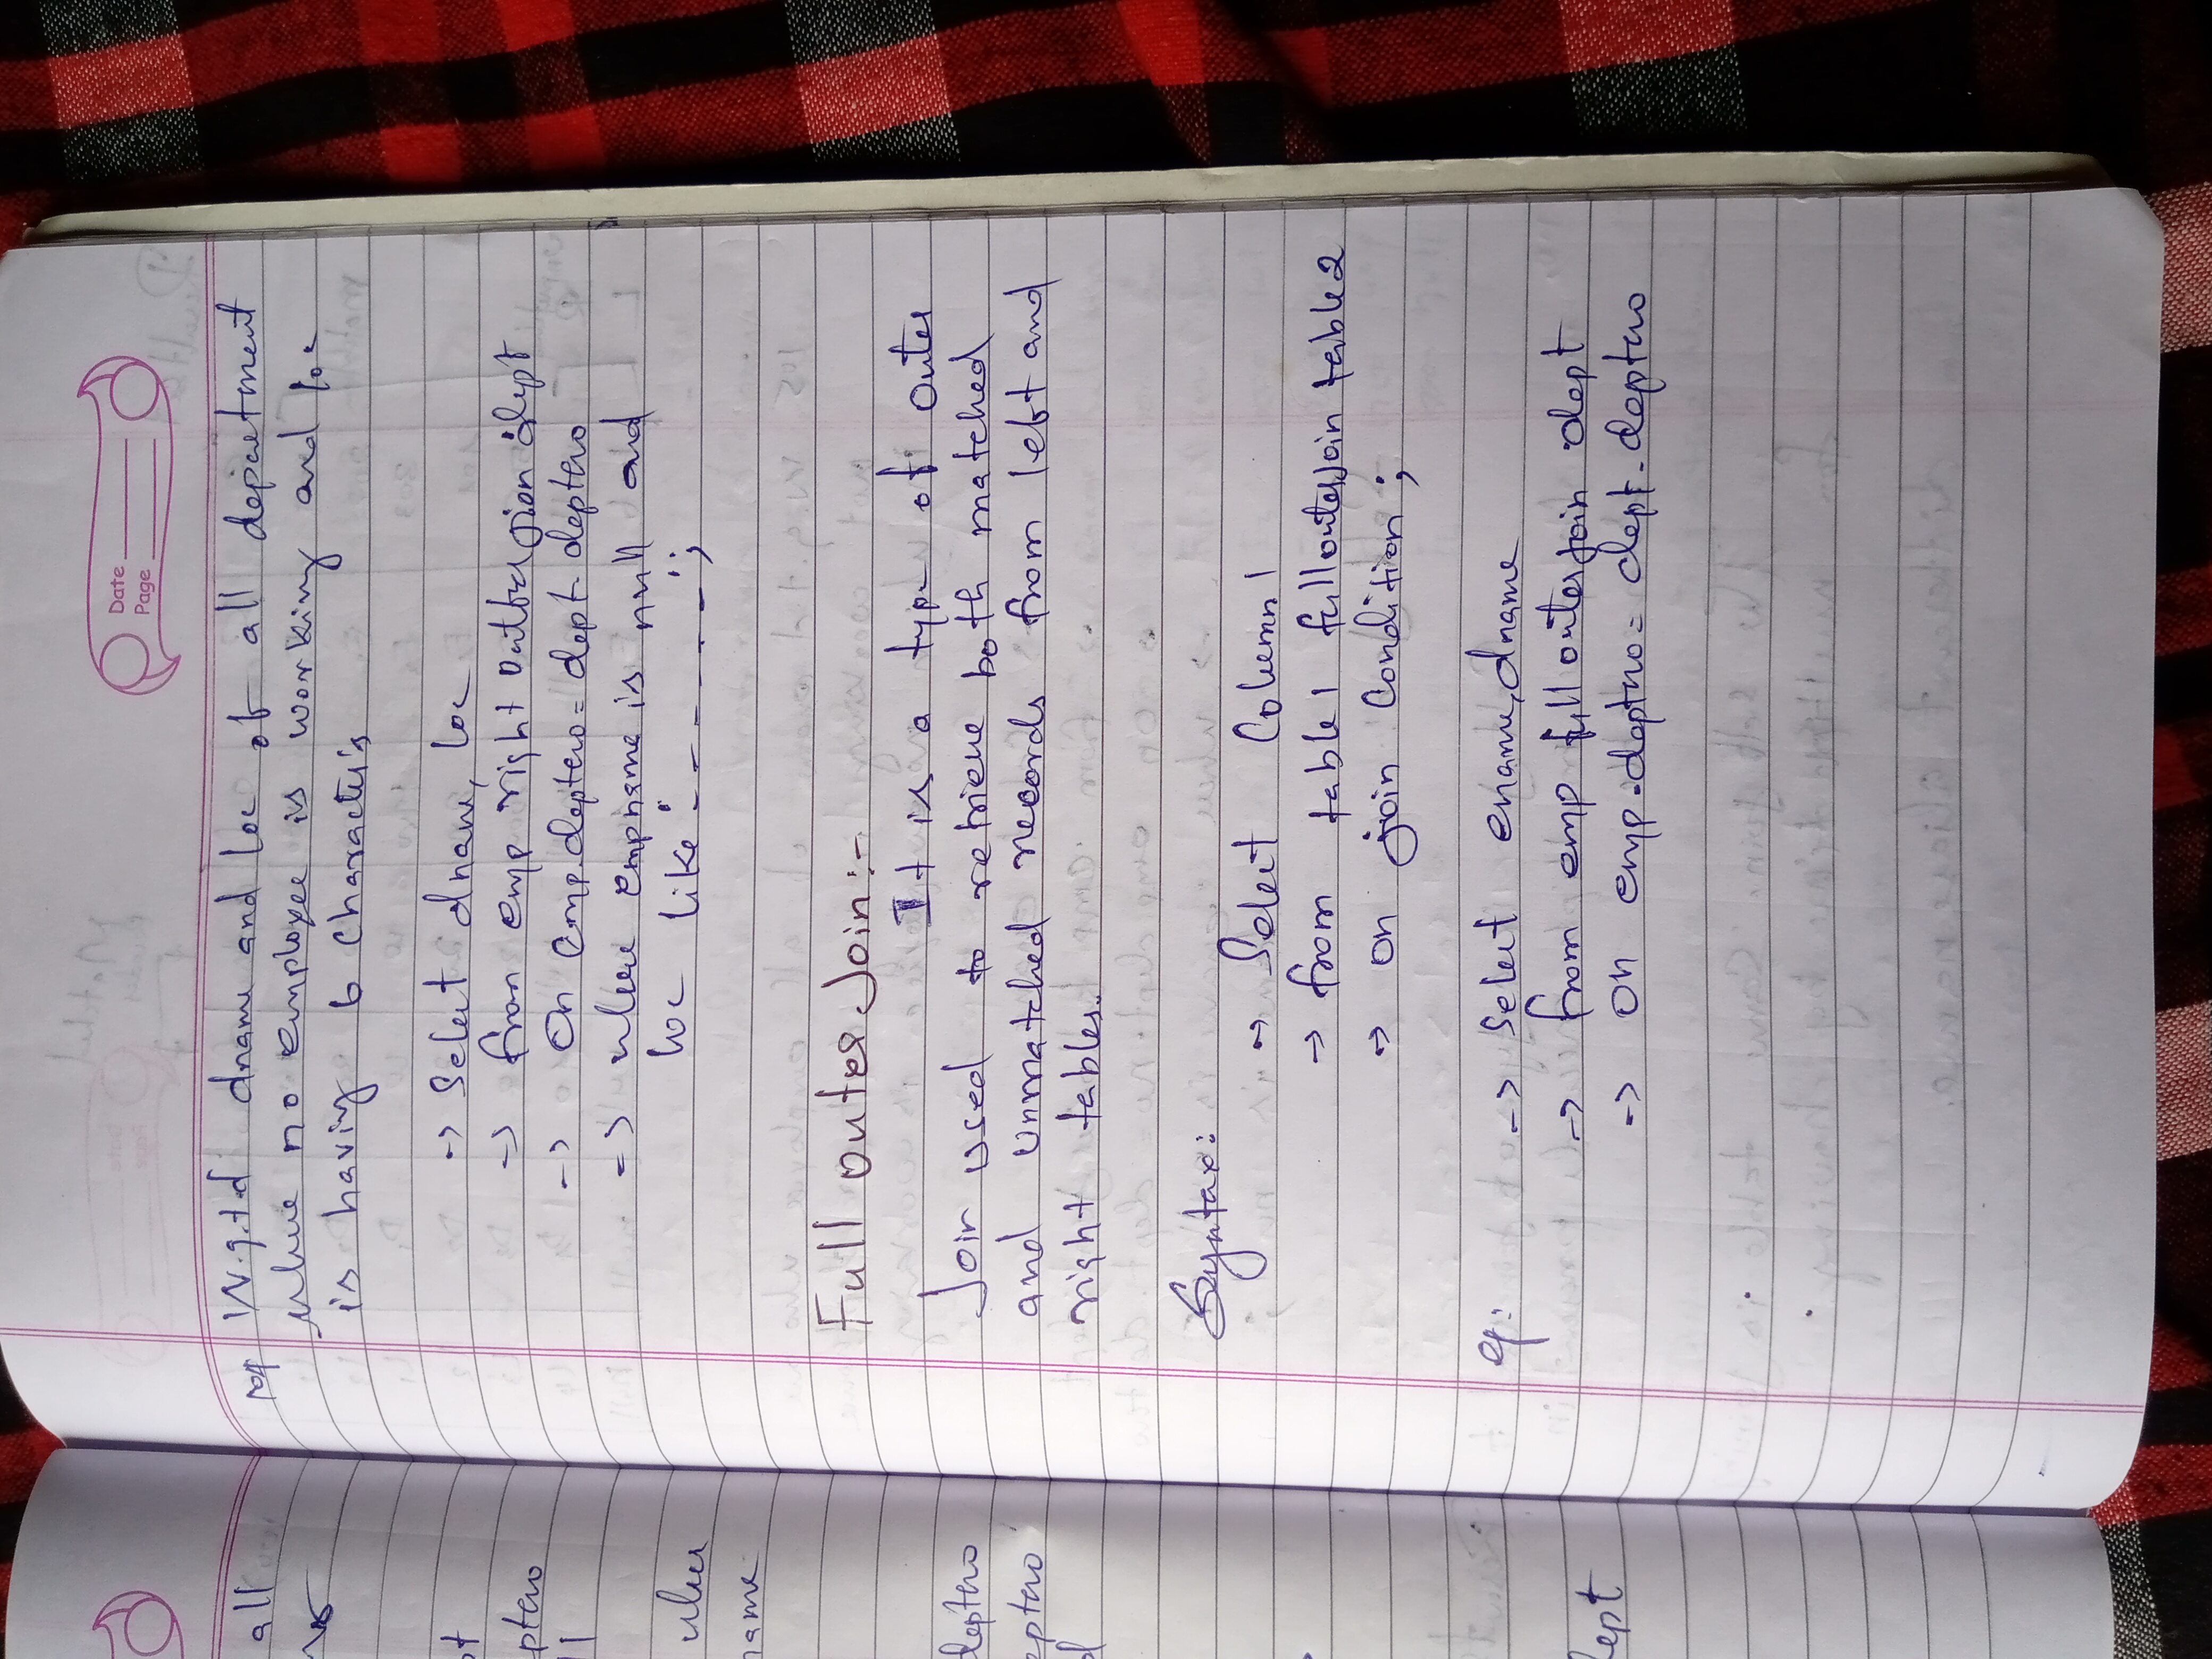 all
ul
pt
eptno
ll
whe
name
deptno
eptno
d
dept
Date
Page
W.q.t.d dname and loc of all depautment
where no employee is working and loc
is having 6 charactus
-> Select dname, loc
-> from emp right outer jion dept
-> on emp.deptno = dept.deptno
=> where empname is null and
loc like '- - - - - -';
Full outer Join:-
It is a type of outer
Join used to retrieve both matched
and unmatched records from left and
right tables.
Syntax:
-> Select Column1
-> from table1 full outer join table2
-> on join Condition;
eg:
-> Select ename, dname
-> from emp full outer join dept
-> on emp.deptno = dept.deptno